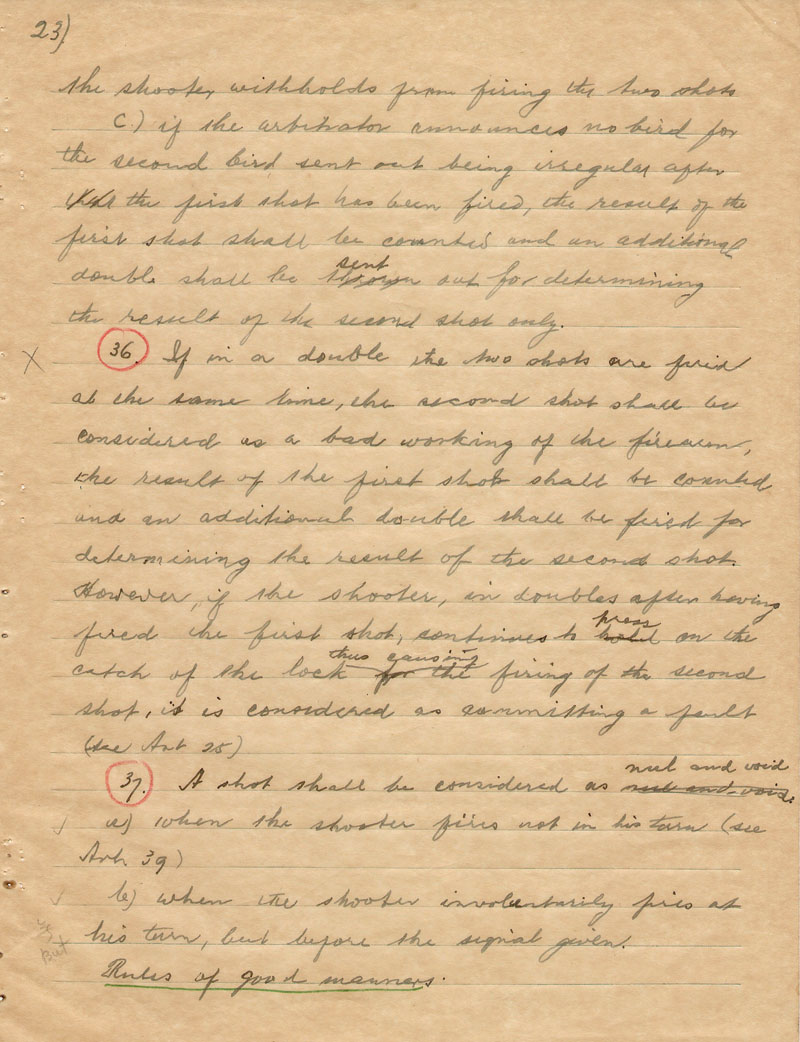 23)
the shooter, withholds from firing the two shots
C.) if the arbitrator announces no bird for
the second bird sent out being irregular after
the first shot has been fired, the result of the
first shot shall be counted and an additional
double shall be thrown sent out for determining
the result of the second shot only.
X 36. If in a double the two shots are fired
at the same time, the second shot shall be
considered as a bad working of the firearm,
the result of the first shot shall be counted
and an additional double shall be fired for
determining the result of the second shot.
However, if the shooter, in doubles after having
fired the first shot, continues to hold press on the
catch of the lock for thus causing the firing of the second
shot, it is considered as committing a fault
(see Art 25)
37. A shot shall be considered as null and void null and void:
a) when the shooter fires not in his turn (see
Art. 39)
b) when the shooter involuntarily fires at
his turn, but before the signal given.
But
Rules of good manners.